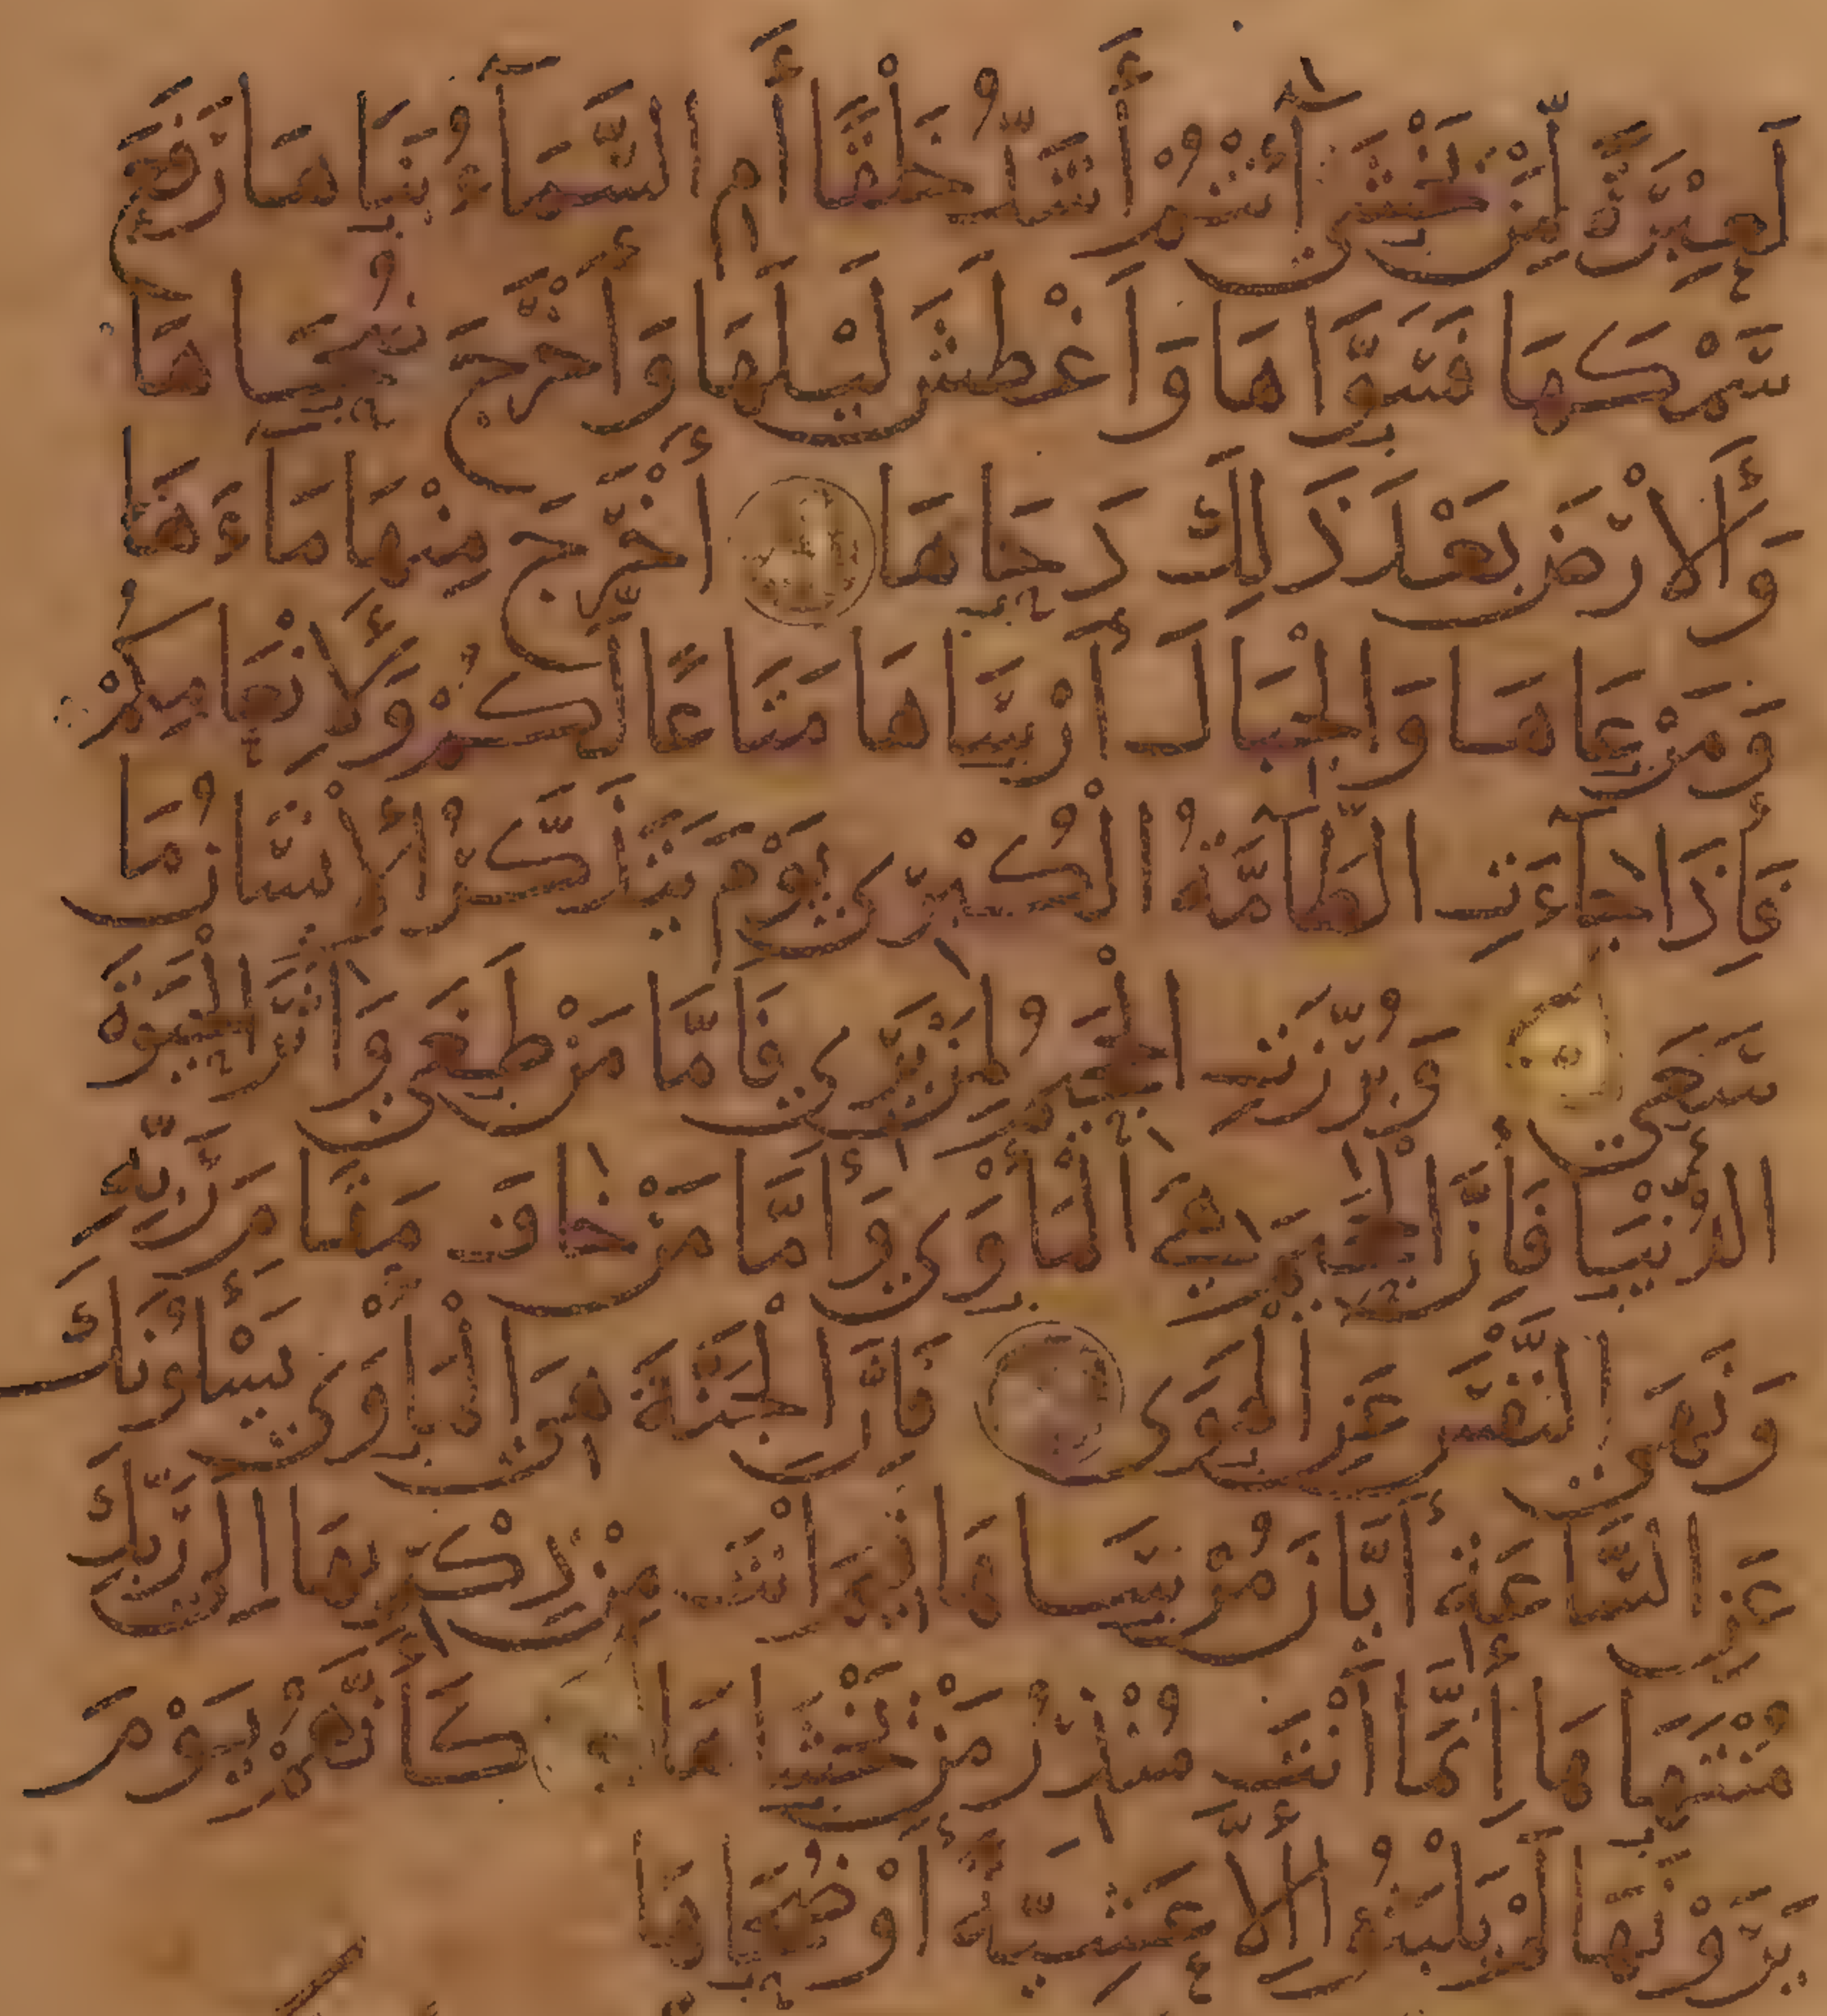 لَعِبْرَةً لِّمَنْ يَخْشَىٰ أَأَنْتُمْ أَشَدُّ خَلْقًا أَمِ السَّمَآءُ بَنَاهَا رَفَعَ
سَمْكَهَا فَسَوَّاهَا وَأَغْطَشَ لَيْلَهَا وَأَخْرَجَ ضُحَاهَا
وَالْأَرْضَ بَعْدَ ذَلِكَ دَحَاهَا أَخْرَجَ مِنْهَا مَاءَهَا
وَمَرْعَاهَا وَالْجِبَالَ أَرْسَاهَا مَتَاعًا لَّكُمْ وَلِأَنْعَامِكُمْ
فَإِذَا جَآءَتِ الطَّآمَّةُ الْكُبْرَى يَوْمَ يَتَذَكَّرُ الْإِنْسَانُ مَا
سَعَى وَبُرِّزَتِ الْجَحِيمُ لِمَنْ يَّرَى فَأَمَّا مَنْ طَغَى وَآثَرَ الْحَيَوٰةَ
الدُّنْيَا فَإِنَّ الْجَحِيمَ هِيَ الْمَأْوَى وَأَمَّا مَنْ خَافَ مَقَامَ رَبِّهِ
وَنَهَى النَّفْسَ عَنِ الْهَوَى فَإِنَّ الْجَنَّةَ هِيَ الْمَأْوَى يَسْأَلُونَكَ
عَنِ السَّاعَةِ أَيَّانَ مُرْسَاهَا فِيمَ أَنْتَ مِنْ ذِكْرَاهَا إِلَى رَبِّكَ
مُنْتَهَاهَا إِنَّمَا أَنْتَ مُنْذِرُ مَنْ يَخْشَاهَا كَأَنَّهُمْ يَوْمَ
يَرَوْنَهَا لَمْ يَلْبَثُوا إِلَّا عَشِيَّةً أَوْ ضُحَاهَا